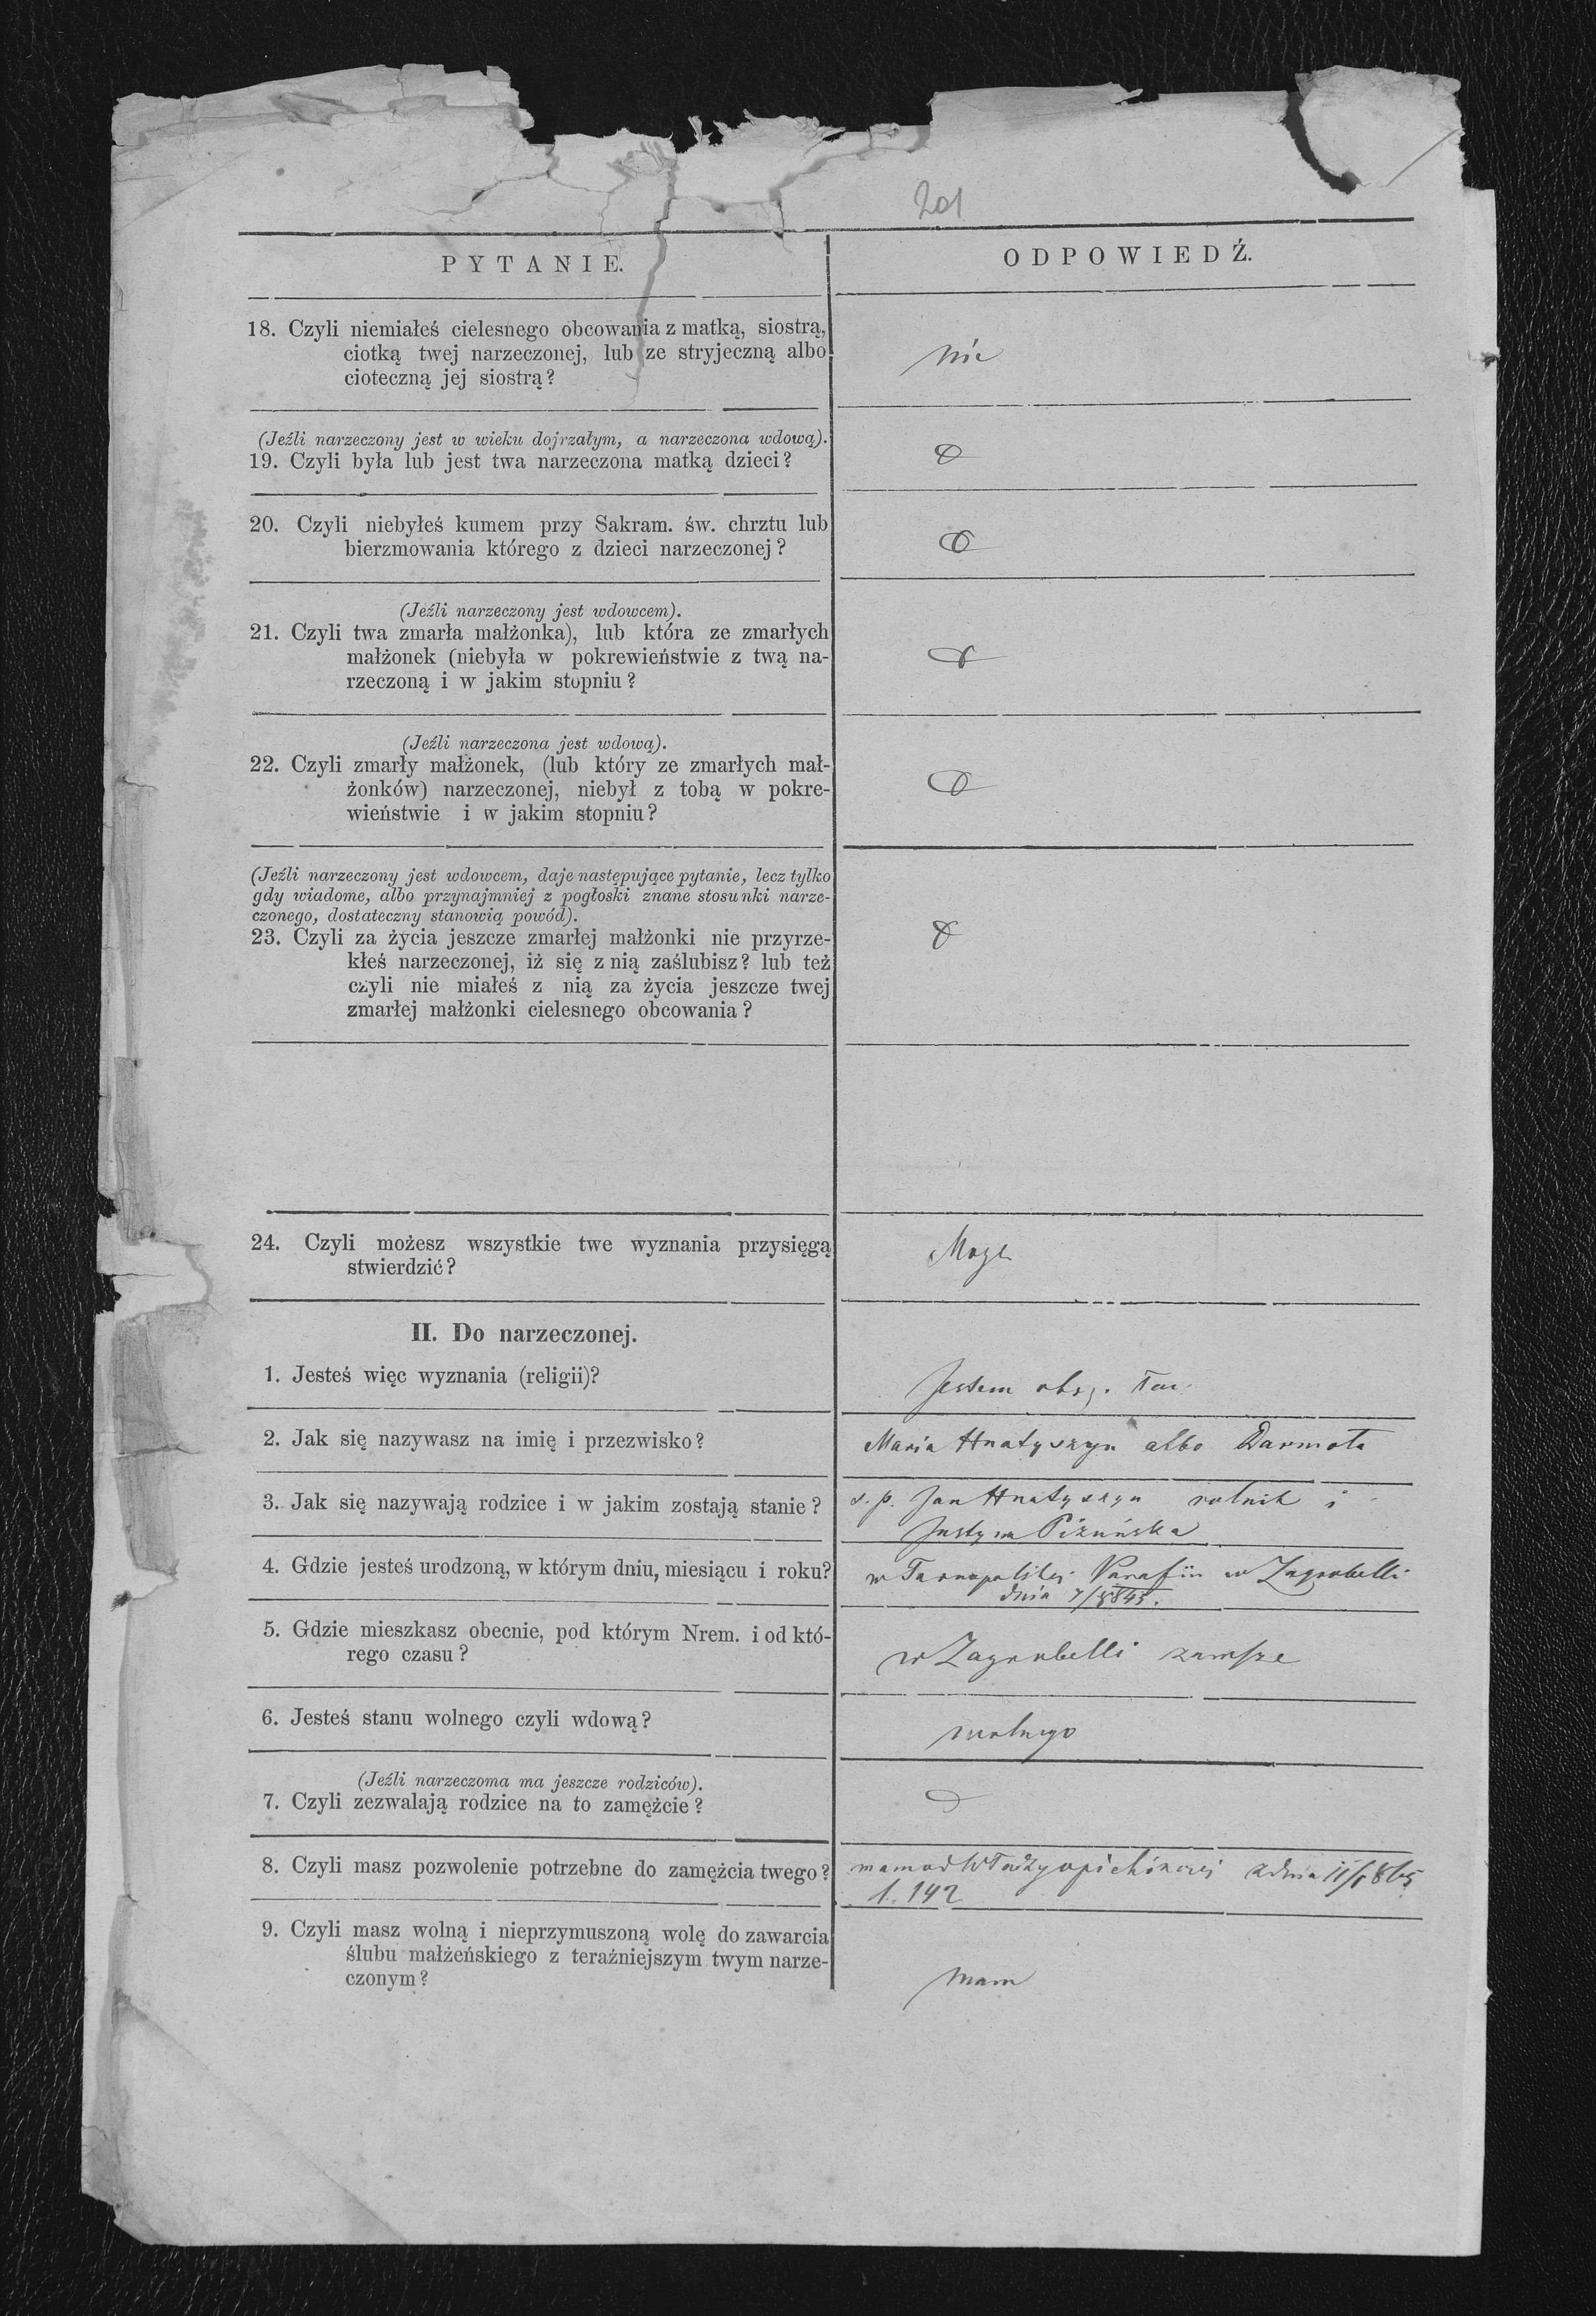 201
PYTANIE.
ODPOWIEDŹ.
18. Czyli niemiałeś cielesnego obcowania z matką, siostrą,
ciotką twej narzeczonej, lub ze stryjeczną albo
cioteczną jej siostrą?
nie
(Jeźli narzeczony jest w wieku dojrzałym, a narzeczona wdową).
19. Czyli była lub jest twa narzeczona matką dzieci?
20. Czyli niebyłeś kumem przy Sakram. św. chrztu lub
bierzmowania którego z dzieci narzeczonej?
(Jeźli narzeczony jest wdowcem).
21. Czyli twa zmarła małżonka), lub która ze zmarłych
małżonek (niebyła w pokrewieństwie z twą na-
rzeczoną i w jakim stopniu?
(Jeźli narzeczona jest wdową).
22. Czyli zmarły małżonek, (lub który ze zmarłych mał-
żonków) narzeczonej, niebył z tobą w pokre-
wieństwie i w jakim stopniu?
(Jeźli narzeczony jest wdowcem, daje następujące pytanie, lecz tylko
gdy wiadome, albo przynajmniej z pogłoski znane stosunki narze-
czonego, dostateczny stanowią powód).
23. Czyli za życia jeszcze zmarłej małżonki nie przyrze-
kłeś narzeczonej, iż się z nią zaślubisz? lub też
czyli nie miałeś z nią za życia jeszcze twej
zmarłej małżonki cielesnego obcowania?
24. Czyli możesz wszystkie twe wyznania przysięgą
stwierdzić?
Mogę
II. Do narzeczonej.
1. Jesteś więc wyznania (religii)?
Jestem obrz. łac.
2. Jak się nazywasz na imię i przezwisko?
Maria Hnatyszyn albo Darmota
3. Jak się nazywają rodzice i w jakim zostają stanie?
ś. p. Jan Hnatyszyn rolnik i
Justyna
4. Gdzie jesteś urodzoną, w którym dniu, miesiącu i roku?
w Tarnopolskiej Parafii w Zagrobelli
dnia
5. Gdzie mieszkasz obecnie, pod którym Nrem. i od któ-
rego czasu?
w Zagrobelli zawsze
6. Jesteś stanu wolnego czyli wdową?
wolnego
(Jeźli narzeczoma ma jeszcze rodziców).
7. Czyli zezwalają rodzice na to zamężcie?
8. Czyli masz pozwolenie potrzebne do zamężcia twego?
mam od Władzy opiekuńczej z dnia 11/1 865
l. 142
9. Czyli masz wolną i nieprzymuszoną wolę do zawarcia
ślubu małżeńskiego z teraźniejszym twym narze-
czonym?
mam